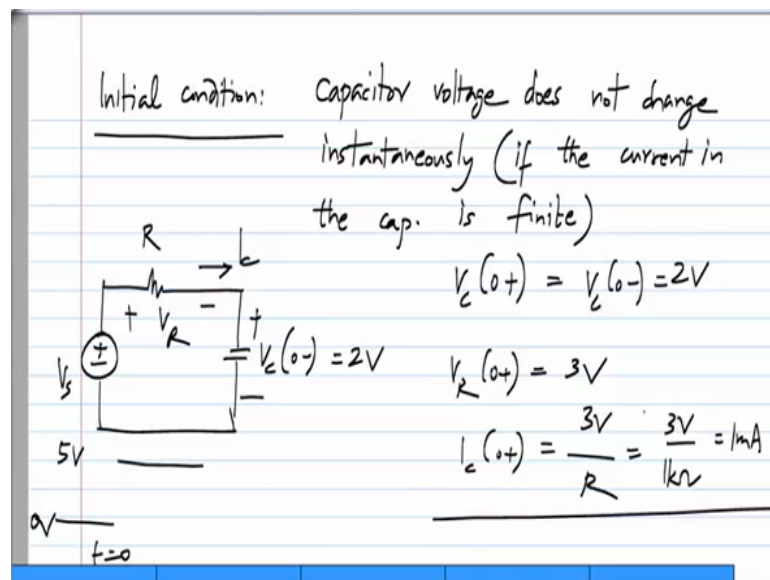 Initial condition: Capacitor voltage does not change
instantaneously (if the current in
the cap. is finite)
R
Ic
+ VR -
+
Vc(0-) = 2V
-
Vs
+
-
5V
0V
t=0
Vc(0+) = Vc(0-) = 2V
VR(0+) = 3V
Ic(0+) = 3V/R = 3V/1kΩ = 1mA